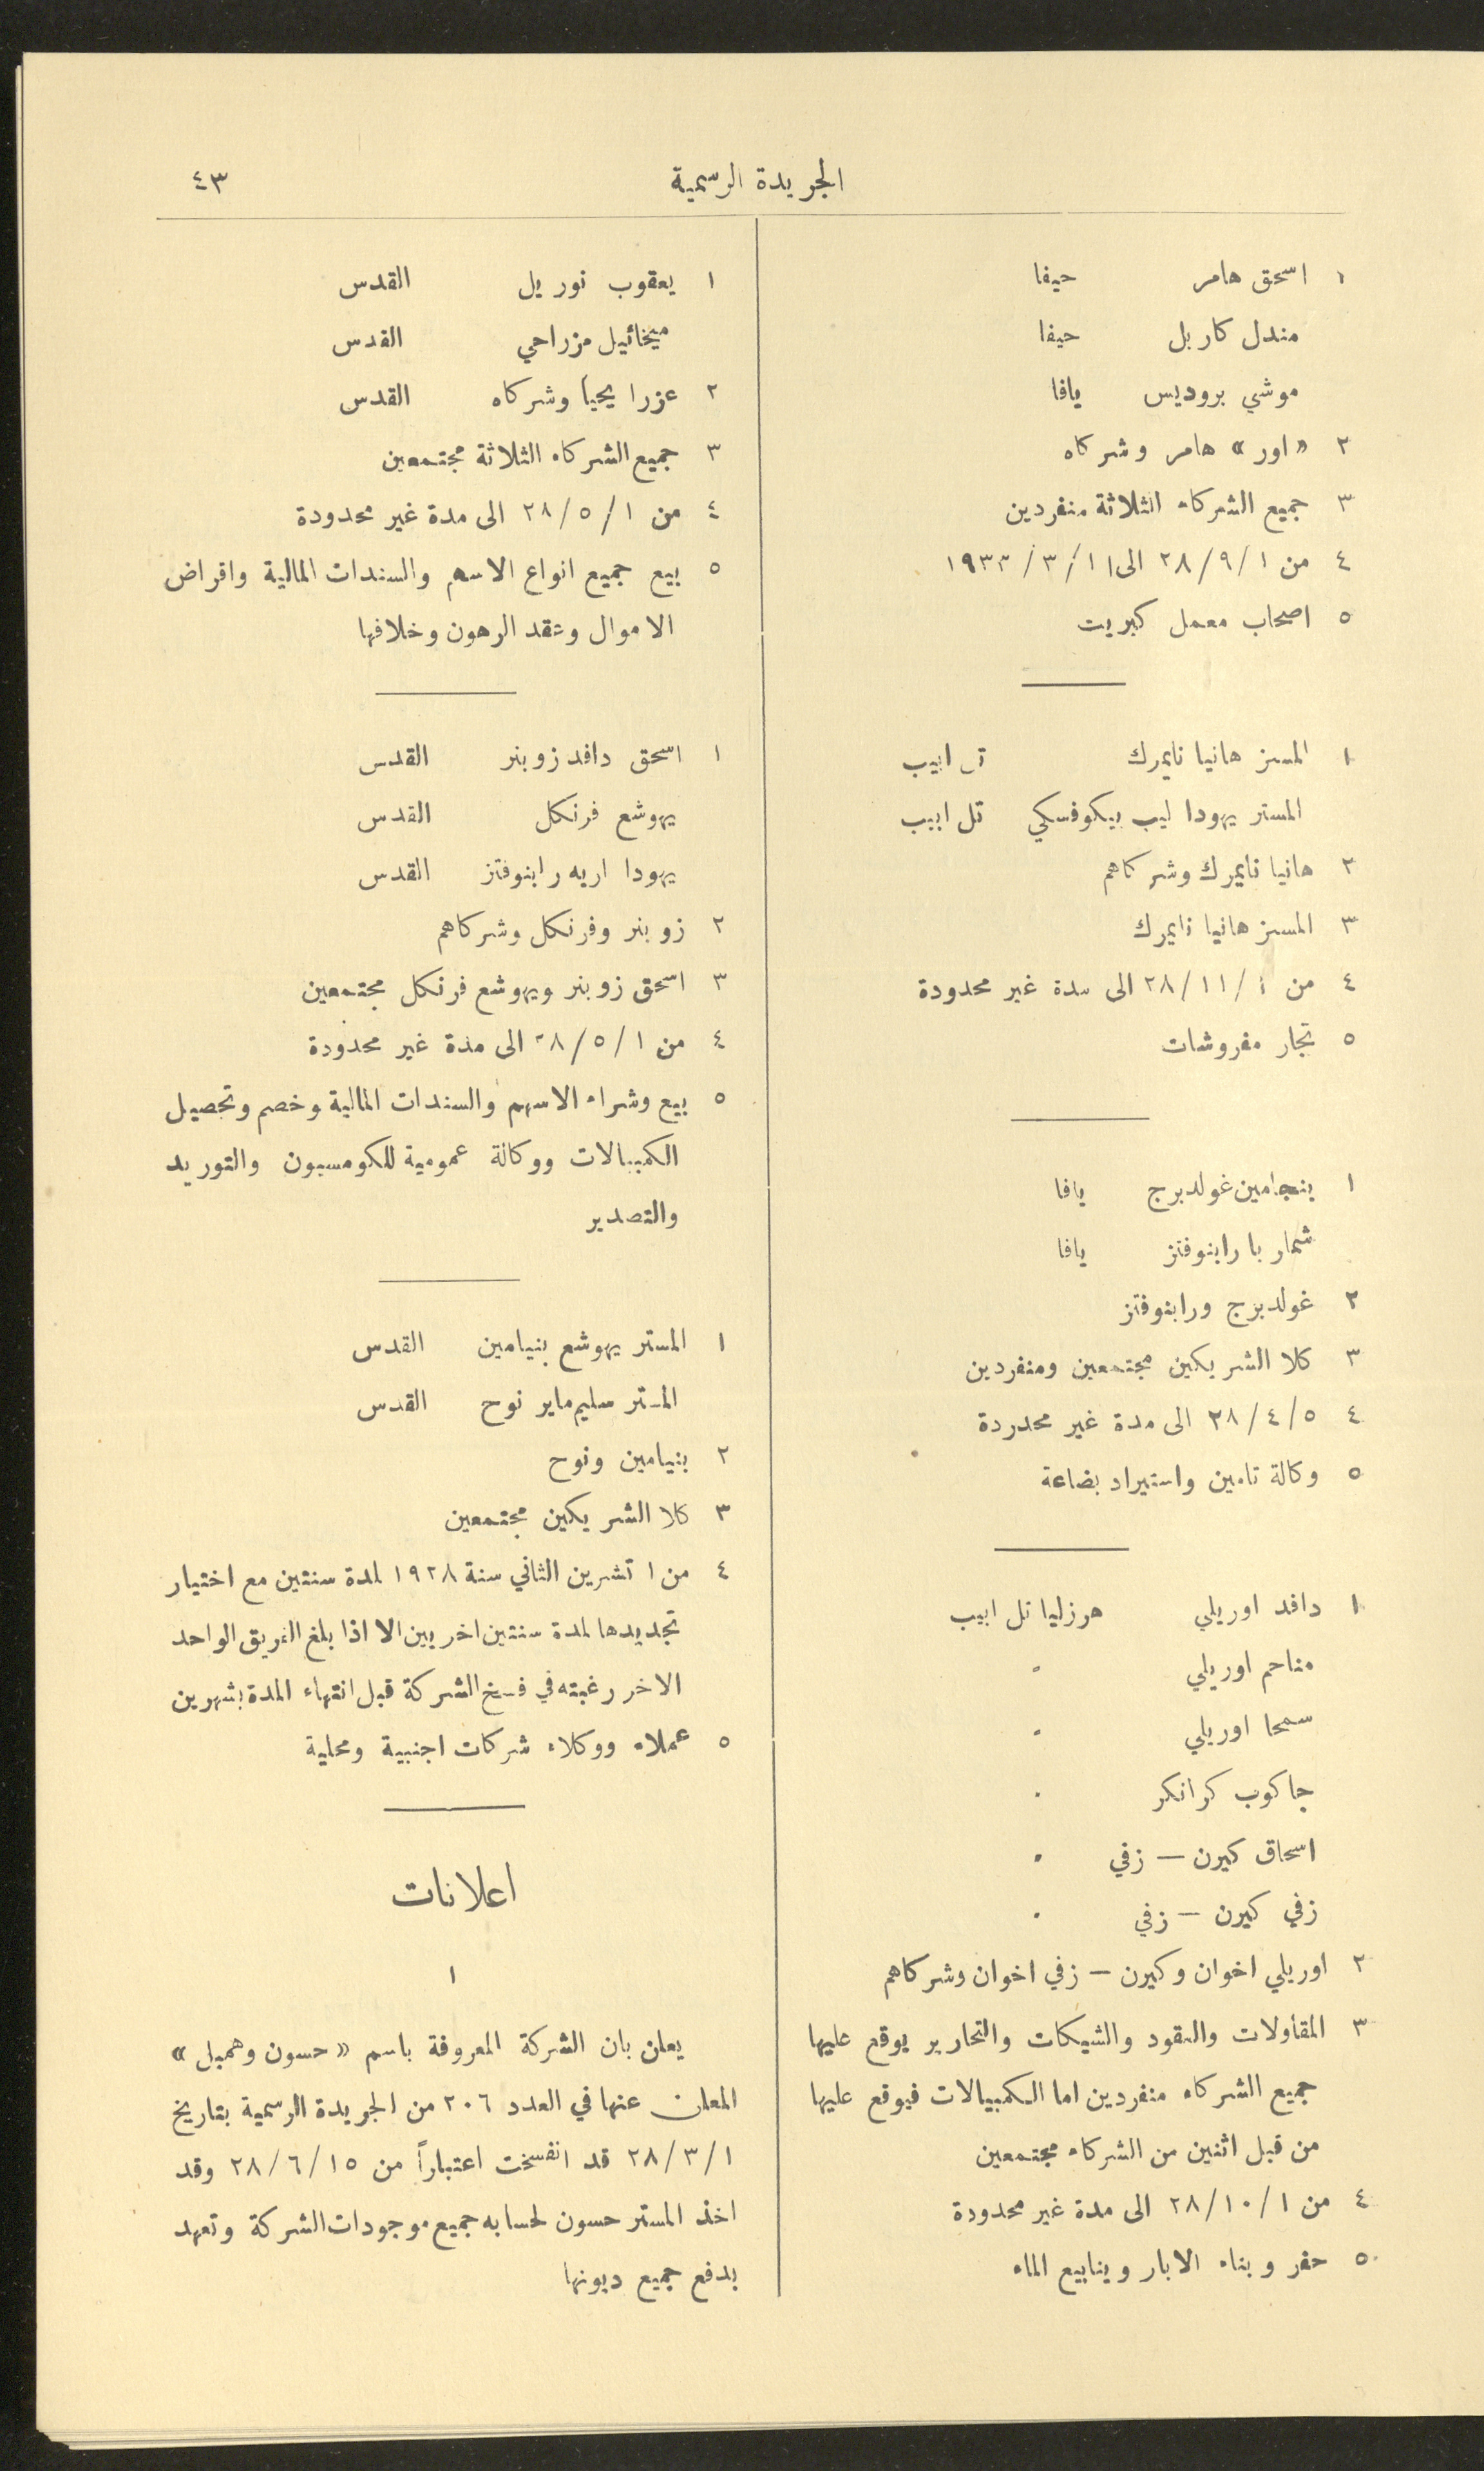 الجريدة الرسمية ٤٣
١ اسحق هامر حيفا
مندل كاربل حيفا
موشي بروديس يافا
٢ «اور» هامر وشركاه
٣ جميع الشركاء الثلاثة منفردين
٤ من ٢٨/٩/١ الى ١٩٣٣/٣/١
٥ اصحاب معمل كبريت
١ المسز هانيا نايمرك تل ابيب
المستر يهودا ليب بيكوفسكي تل ابيب
٢ هانيا نايمرك وشركاهم
٣ المسز هانيا نايمرك
٤ من ٢٨/١١/١ الى مدة غير محدودة
٥ تجار مفروشات
١ بنجامين غولدبرج يافا
شمار يا رابنوفتز يافا
٢ غولدبرج ورابنوفتز
٣ كلا الشريكين مجتمعين ومنفردين
٤ ٢٨/٤/٥ الى مدة غير محدودة
٥ وكالة تامين واستيراد بضاعة
١ دافد اوريلي هرزليا تل ابيب
مناحم اوريلي "
سمحا اوريلي "
جاكوب كرانكر "
اسحاق كيرن — زفي "
زفي كيرن — زفي "
٢ اوريلي اخوان وكيرن — زفي اخوان وشركاهم
٣ المقاولات والعقود والشيكات والتحارير يوقع عليها
جميع الشركاء منفردين اما الكمبيالات فيوقع عليها
من قبل اثنين من الشركاء مجتمعين
٤ من ٢٨/١٠/١ الى مدة غير محدودة
٥ حفر وبناء الابار وينابيع الماء
١ يعقوب نوريل القدس
ميخائيل مزراحي القدس
٢ عزرا يحيا وشركاه القدس
٣ جميع الشركاء الثلاثة مجتمعين
٤ من ٢٨/٥/١ الى مدة غير محدودة
٥ بيع جميع انواع الاسهم والسندات المالية واقراض
الاموال وعقد الرهون وخلافها
١ اسحق دافد زوبنر القدس
يهوشع فرنكل القدس
يهودا اريه رابنوفتز القدس
٢ زوبنر وفرنكل وشركاهم
٣ اسحق زوبنر ويهوشع فرنكل مجتمعين
٤ من ٢٨/٥/١ الى مدة غير محدودة
٥ بيع وشراء الاسهم والسندات المالية وخصم وتحصيل
الكمبيالات ووكالة عمومية للكومسيون والتوريد
والتصدير
١ المستر يهوشع بنيامين القدس
المستر سليم ماير نوح القدس
٢ بنيامين ونوح
٣ كلا الشريكين مجتمعين
٤ من ١ تشرين الثاني سنة ١٩٢٨ لمدة سنتين مع اختيار
تجديدها لمدة سنتين اخريين الا اذا بلغ الفريق الواحد
الاخر رغبته في فسخ الشركة قبل انتهاء المدة بشهرين
٥ عملاء ووكلاء شركات اجنبية ومحلية
اعلانات
١
يعلن بان الشركة المعروفة باسم «حسون وهمبل»
المعلن عنها في العدد ٢٠٦ من الجريدة الرسمية بتاريخ
٢٨/٣/١ قد انفسخت اعتباراً من ٢٨/٦/١٥ وقد
اخذ المستر حسون لحسابه جميع موجودات الشركة وتعهد
بدفع جميع ديونها